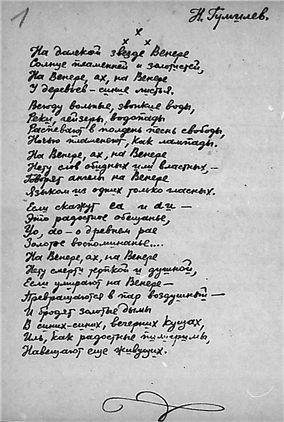 1
Н. Гумилев.
х
х х
На далекой звезде Венере
Солнце пламенней и золотистей,
На Венере, ах, на Венере
У деревьев – синие листья.
Всюду вольные, звонкие воды,
Реки, гейзеры, водопады
Распевают в полдень песнь свободы,
Ночью пламенеют, как лампады.
На Венере, ах, на Венере
Нету слов обидных или властных –
Говорят ангелы на Венере
Языком из одних только гласных.
Если скажут еа и аи –
Это радостное обещанье,
Уо, ао – о древнем рае
Золотое воспоминанье....
На Венере, ах, на Венере
Нету смерти терпкой и душной,
Если умирают на Венере –
Превращаются в пар воздушный –
И бродят золотые дымы
В синих-синих, вечерних кущах,
Иль, как радостные пилигримы,
Навещают еще живущих.